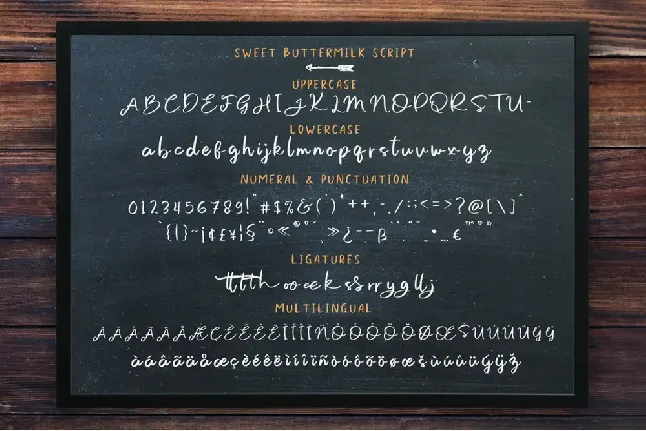 SWEET BUTTERMILK SCRIPT
UPPERCASE
ABCDEFGHIJKLMNOPQRSTU-
LOWERCASE
abcdefghijklmnopqrstuvwxyz
NUMERAL & PUNCTUATION
0123456789!"#$%&()*++,-./:;<=>?@[\]^
`{|}~¡¢£¥¦§¨©«®¯°±´¸»¿–—
LIGATURES
MULTILINGUAL
ÀÁÂÃÄÅÆÇÈÉÊËÌÍÎÏÑÒÓÔÕÖØŒŠÙÚÛÜÝŸ
àáâãäåæçèéêëìíîïñòóôõöøœšùúûüýÿž